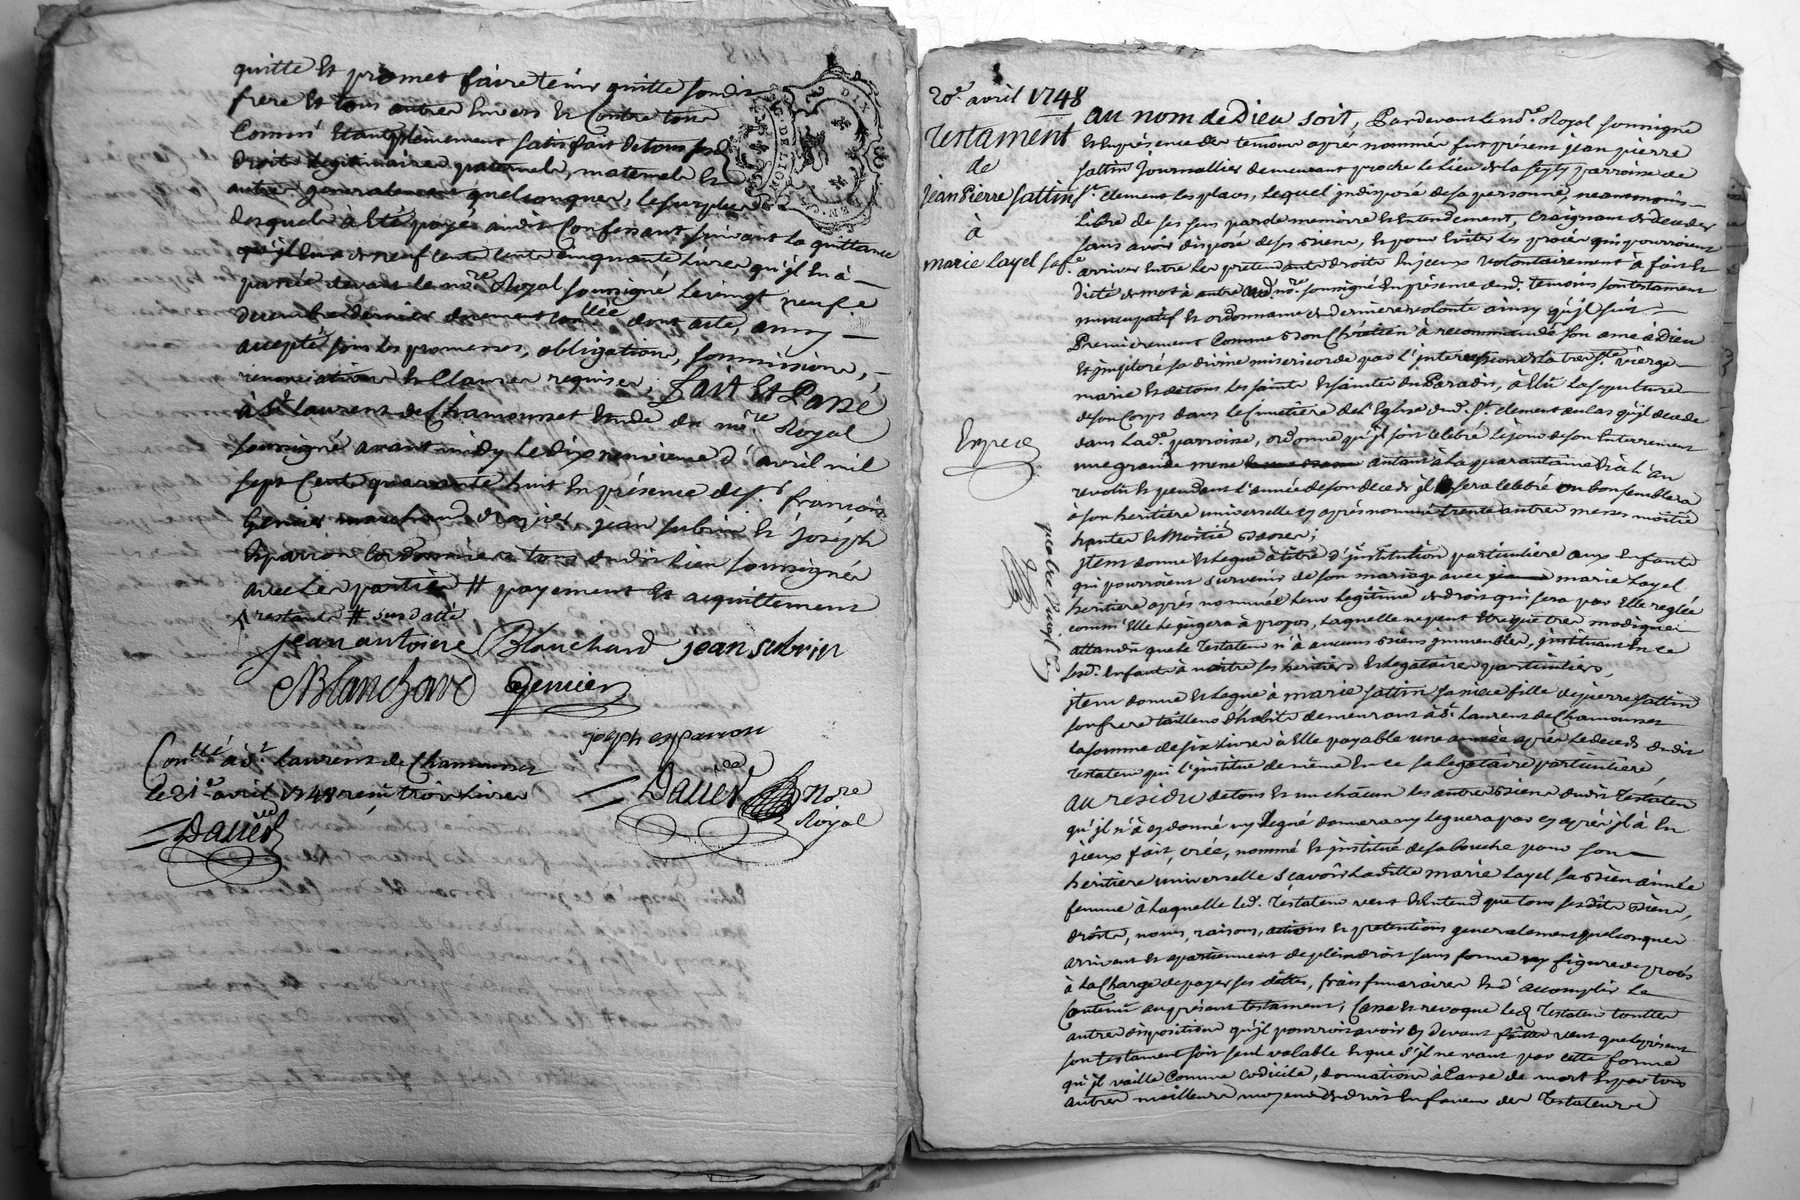 quitte Et promet faire tenir quitte sondit
frere Et tous autres Envers Et Contre tous
Comm' Etant pleinement satisfait de tous ses
droits legitimaires paternels, maternels Et
autres generalement quelconques, le surplus
desquels à Eté payé audit Confessant suivant la quittance
qu'jl En à
passée devant le no.re Royal soussigné le vingt neuf e
decembre dernier dont acte, ainsy
accepté sous les promesses, obligations, soumissions,
renonciations Et Clauses requises, Fait Et Passé
à S.t Laurent de Chamousset Etude du no.re Royal
soussigné avant midy le dix neuvieme d'avril mil
sept Cents quarante huit En présence de s.r françois
Genier marchand jean subrin Et joséph
Esparron Cordonniers tous dudit lieu soussignés
avec les parties # payement Et acquittement
restant # susdatté
jean antoine Blanchard jean subrin
Blanchard Genier
joseph esparron
Con.llé à S.t Laurent de Chamousset
le 21.e avril 1748 reçu trois Livres
Dalier No.re
Royal
Dalier
DIX DEN.
G. DE LION
20.e avril 1748
Testament
de
jean Pierre sattin
à
marie Layel sa f.e
Expedié
au nom de Dieu soit, Pardevant le no.re Royal soussigné
Et En présence des temoins aprés nommés fut présent jean pierre
sattin journallier demeurant proche le Lieu de parroisse de
S.t clement les places, Lequel jndisposé de sa personne, neanmoins
Libre de ses sens parole memoire Et Entendement, Craignant de deceder
sans avoir disposé de ses Biens, Et pour Eviter les procés qui pourroient
arriver Entre les pretendants droits En jceux volontairement à fait Et
dicté de mot à autre aud. no.re soussigné En présence desd. temoins son testament
nuncupatif Et ordonnance de derniere volonté ainsy qu'jl suit.
Premierement Comme Bon Chrétien à recommandé son ame à Dieu
Et jmploré sa divine misericorde par l'intercession de la tres S.te vierge
marie Et de tous les saints Et saintes du Paradis, à Elû la sepulture
de son Corps dans le Cimetiere de l'Eglise dud. S.t clement au cas qu'jl decede
dans lad.e parroisse, ordonne qu'jl soit celebré le jour de son Enterrement
une grande messe autant à la quarantaine Et à l'an
revolu Et pendant l'année de son decés jl sera celebré ou bon semblera
à son heritiere universelle cy aprés nommée trente autres messes moitié
hautes Et Moitié Basses,
jtem donne Et Legue à titre d'jnstitution particuliere aux Enfants
qui pourroient survenir de son mariage avec marie Layel
heritiere aprés nommée leur Legitime de droit qui sera par Elle reglée
comm' Elle le jugera à propos, Laquelle ne peut Etre que tres modique
attendu que le Testateur n'à aucuns Biens jmmeubles, jnstituant En ce
lesd. Enfants à naitre ses heritiers Et Legataires particuliers,
jtem donne Et Legue à marie sattin sa niece fille de pierre sattin
son frere tailleur d'habits demeurant à S.t Laurent de Chamousset
la somme de six Livres à Elle payable une année aprés le decés dudit
Testateur qui l'jnstitue de même En ce sa legataire particuliere,
au residu de tous Et un chacun les autres Biens dudit Testateur
qu'jl n'à cy donné ny Legué donnera ny Leguera par cy aprés jl à En
jceux fait, créé, nommé Et jnstitué de sa bouche pour son
heritiere universelle sçavoir Laditte marie Layel sa Bien aimée
femme à laquelle led. Testateur veut Et Entend que tous sesdits Biens,
droits, noms, raisons, actions Et pretentions generalement quelconques
arrivent Et apartiennent de plein droit sans forme ny figure de procés
à la Charge de payer ses dettes, frais funeraires Et d'accomplir le
Contenû au présent testament, Casse Et revoque led. Testateur touttes
autres dispositions qu'jl pourroit avoir cy devant faittes veut que le présent
son testament soit seul valable Et que s'jl ne vaut par cette forme
qu'jl vaille Comme Codicile, donnation à Cause de mort Et par tous
autres meilleurs moyens de droit En faveur des Testateurs